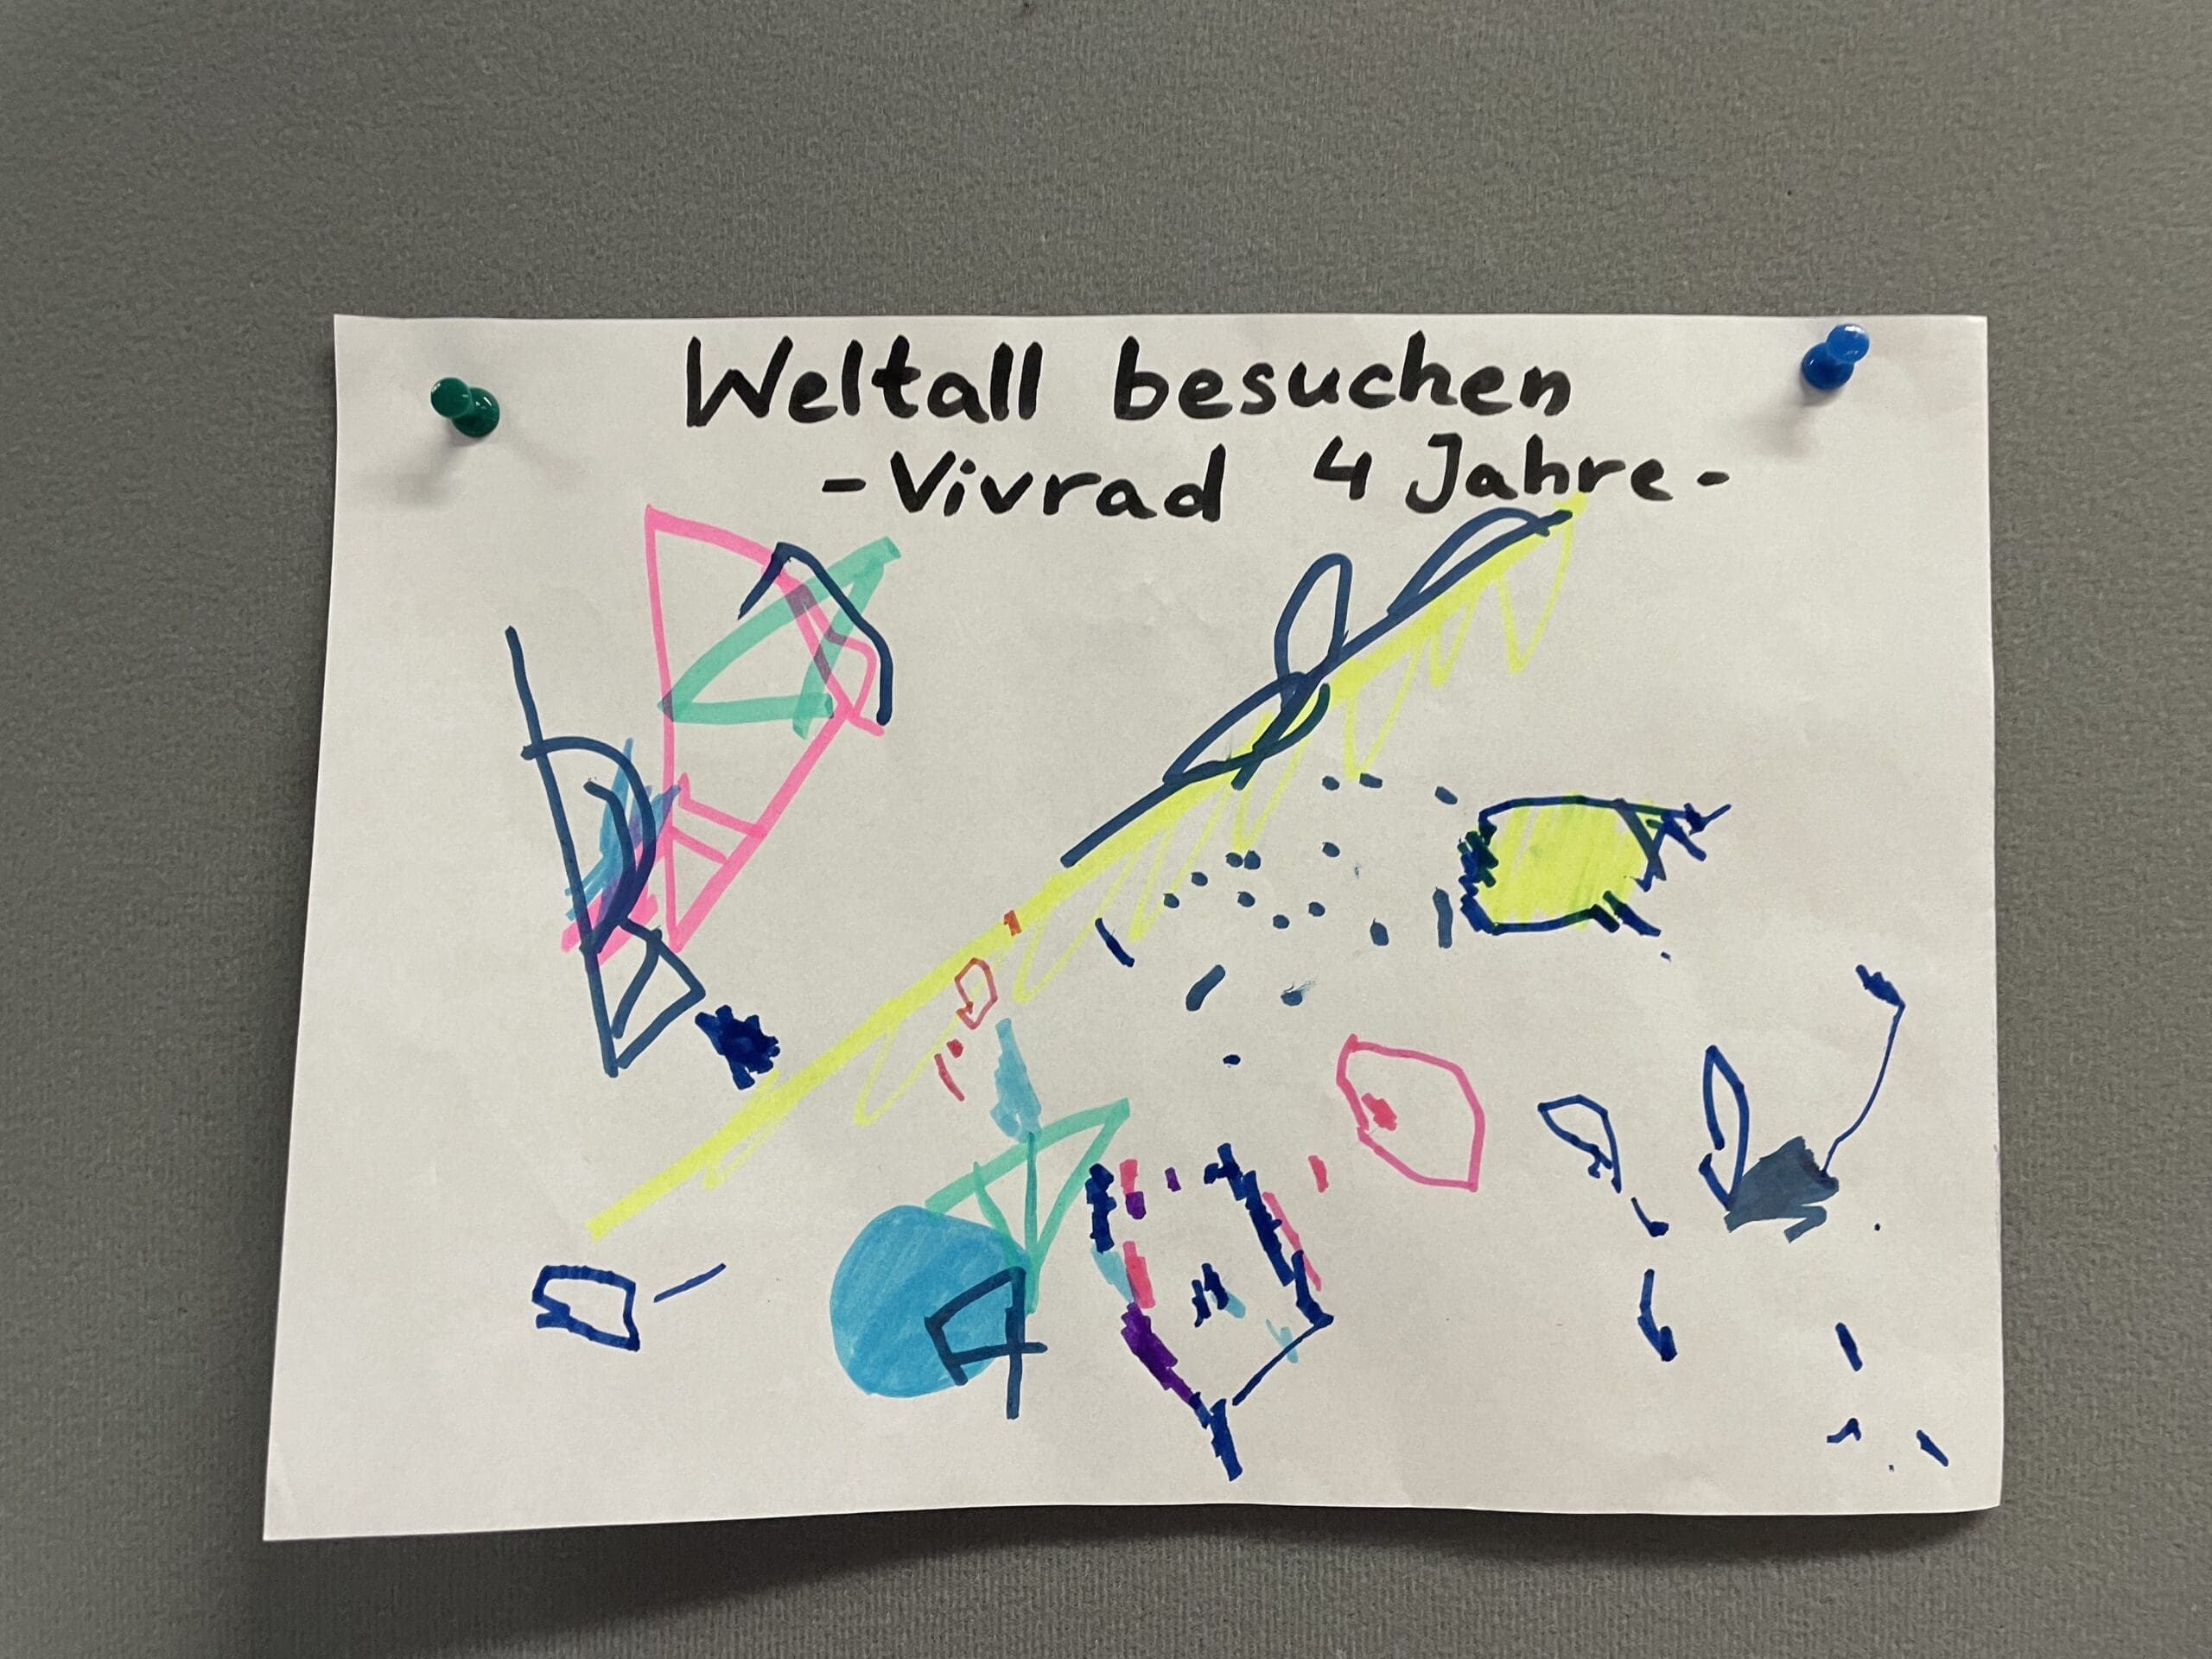 Weltall besuchen
-Vivrad 4 Jahre-